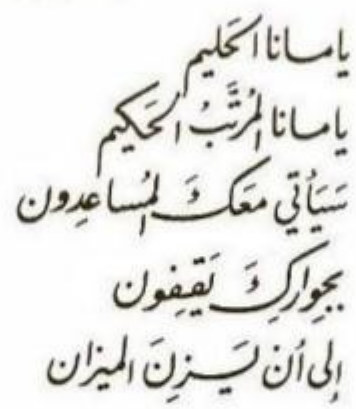 يامانا الحَليم
يامانا المُرتَّبُ الحَكيم
سَيَأتي معَكَ المُساعدِون
بجِواركِ يَقفِون
إلى أنْ يَزنَِ الميزان